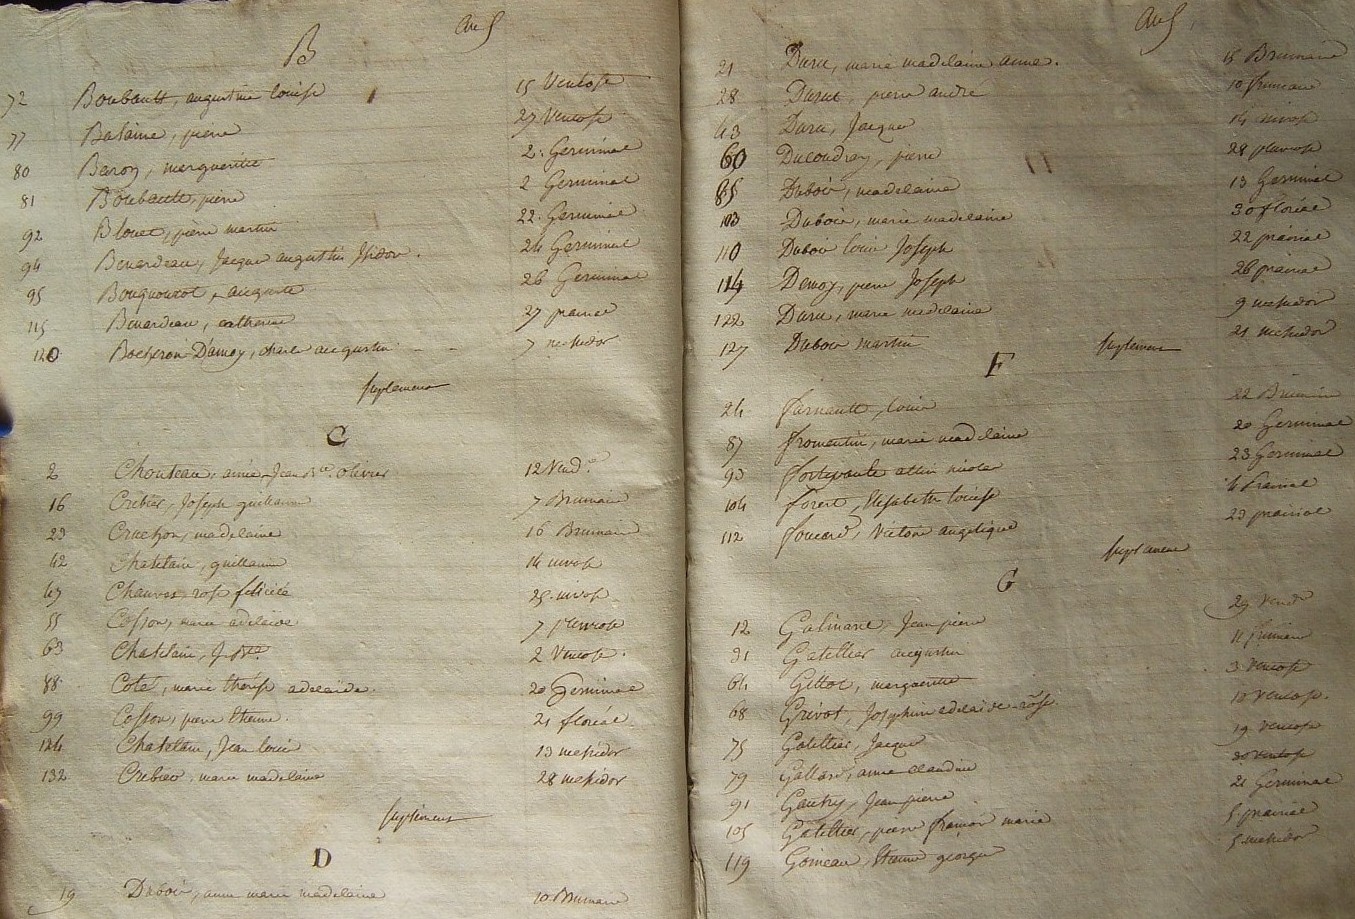 an 5
B
72 Boubault, augustine louise 15 Ventose
77 Balaine, pierre 27 Ventose
80 Baron, marguerite 2. Germinal
81 Boubault, pierre 2 Germinal
92 Blouet, pierre martin 22. Germinal
94 Benardeau, Jacque augustin Isidor. 24 Germinal
95 auguste 26 Germinal
115 Benardeau, catherine 27 prairial
120 D'amoy, charle augustin 7 messidor
suplement
C
2 Chouteau, aimée Jean Bte. olivier 12 Vend.re
16 Crebier, Joseph guillaume 7 Brumaire
23 Cruchon, madelaine 16 Brumaire
42 Chatelain, guillaume 14 nivose
47 Chauvet rose felicité 25 nivose
55 Cosson, marie adelaide 7 pluviose
63 Chatelain, J. Bte. 2 Ventose.
88 Coté, marie thérèse adelaïde. 20 Germinal
99 Cosson, pierre Etienne. 21 floréal
124 Chatelain, Jean louis 13 messidor
132 Crebier, marie madelaine 28 messidor
suplément
D
19 Dubois, anne marie madelaine 10 Brumaire
an 5
21 Daru, marie madelaine anne. 15 Brumaire
28 pierre andré 10 frimaire
43 Daru, Jacque 14 nivose
60 Ducoudray, pierre 28 pluviose
85 Dubois, madelaine 13 Germinal
103 Dubois, marie madelaine 30 floréal
110 Dubois louis Joseph 22 prairial
114 Demoy, pierre Joseph 26 prairial
122 Daru, marie madelaine 9 messidor
127 Dubois martin 21 messidor
suplement
F
24 farnault, louis 22 Brumaire
87 fromentin, marie madelaine 20 Germinal
93 nicolas 23 Germinal
104 foret, Elisabeth louise 4 prairial
112 foucard, Victoire angelique 23 prairial
suplement
G
12 Jean pierre 29 vend.re
31 Gatellier augustin 11 frimaire
64 Gillot, marguerite 3 ventose
68 Grivot, Josephine adelaïde rose 10 ventose.
75 Gatellier, Jacque 19 ventose
79 Gallard, anne claudine 30 ventose
91 Gautry, Jean pierre 21 Germinal
105 Gatellier, pierre françois marie 5 prairial
119 Goineau, Etienne george 5 messidor